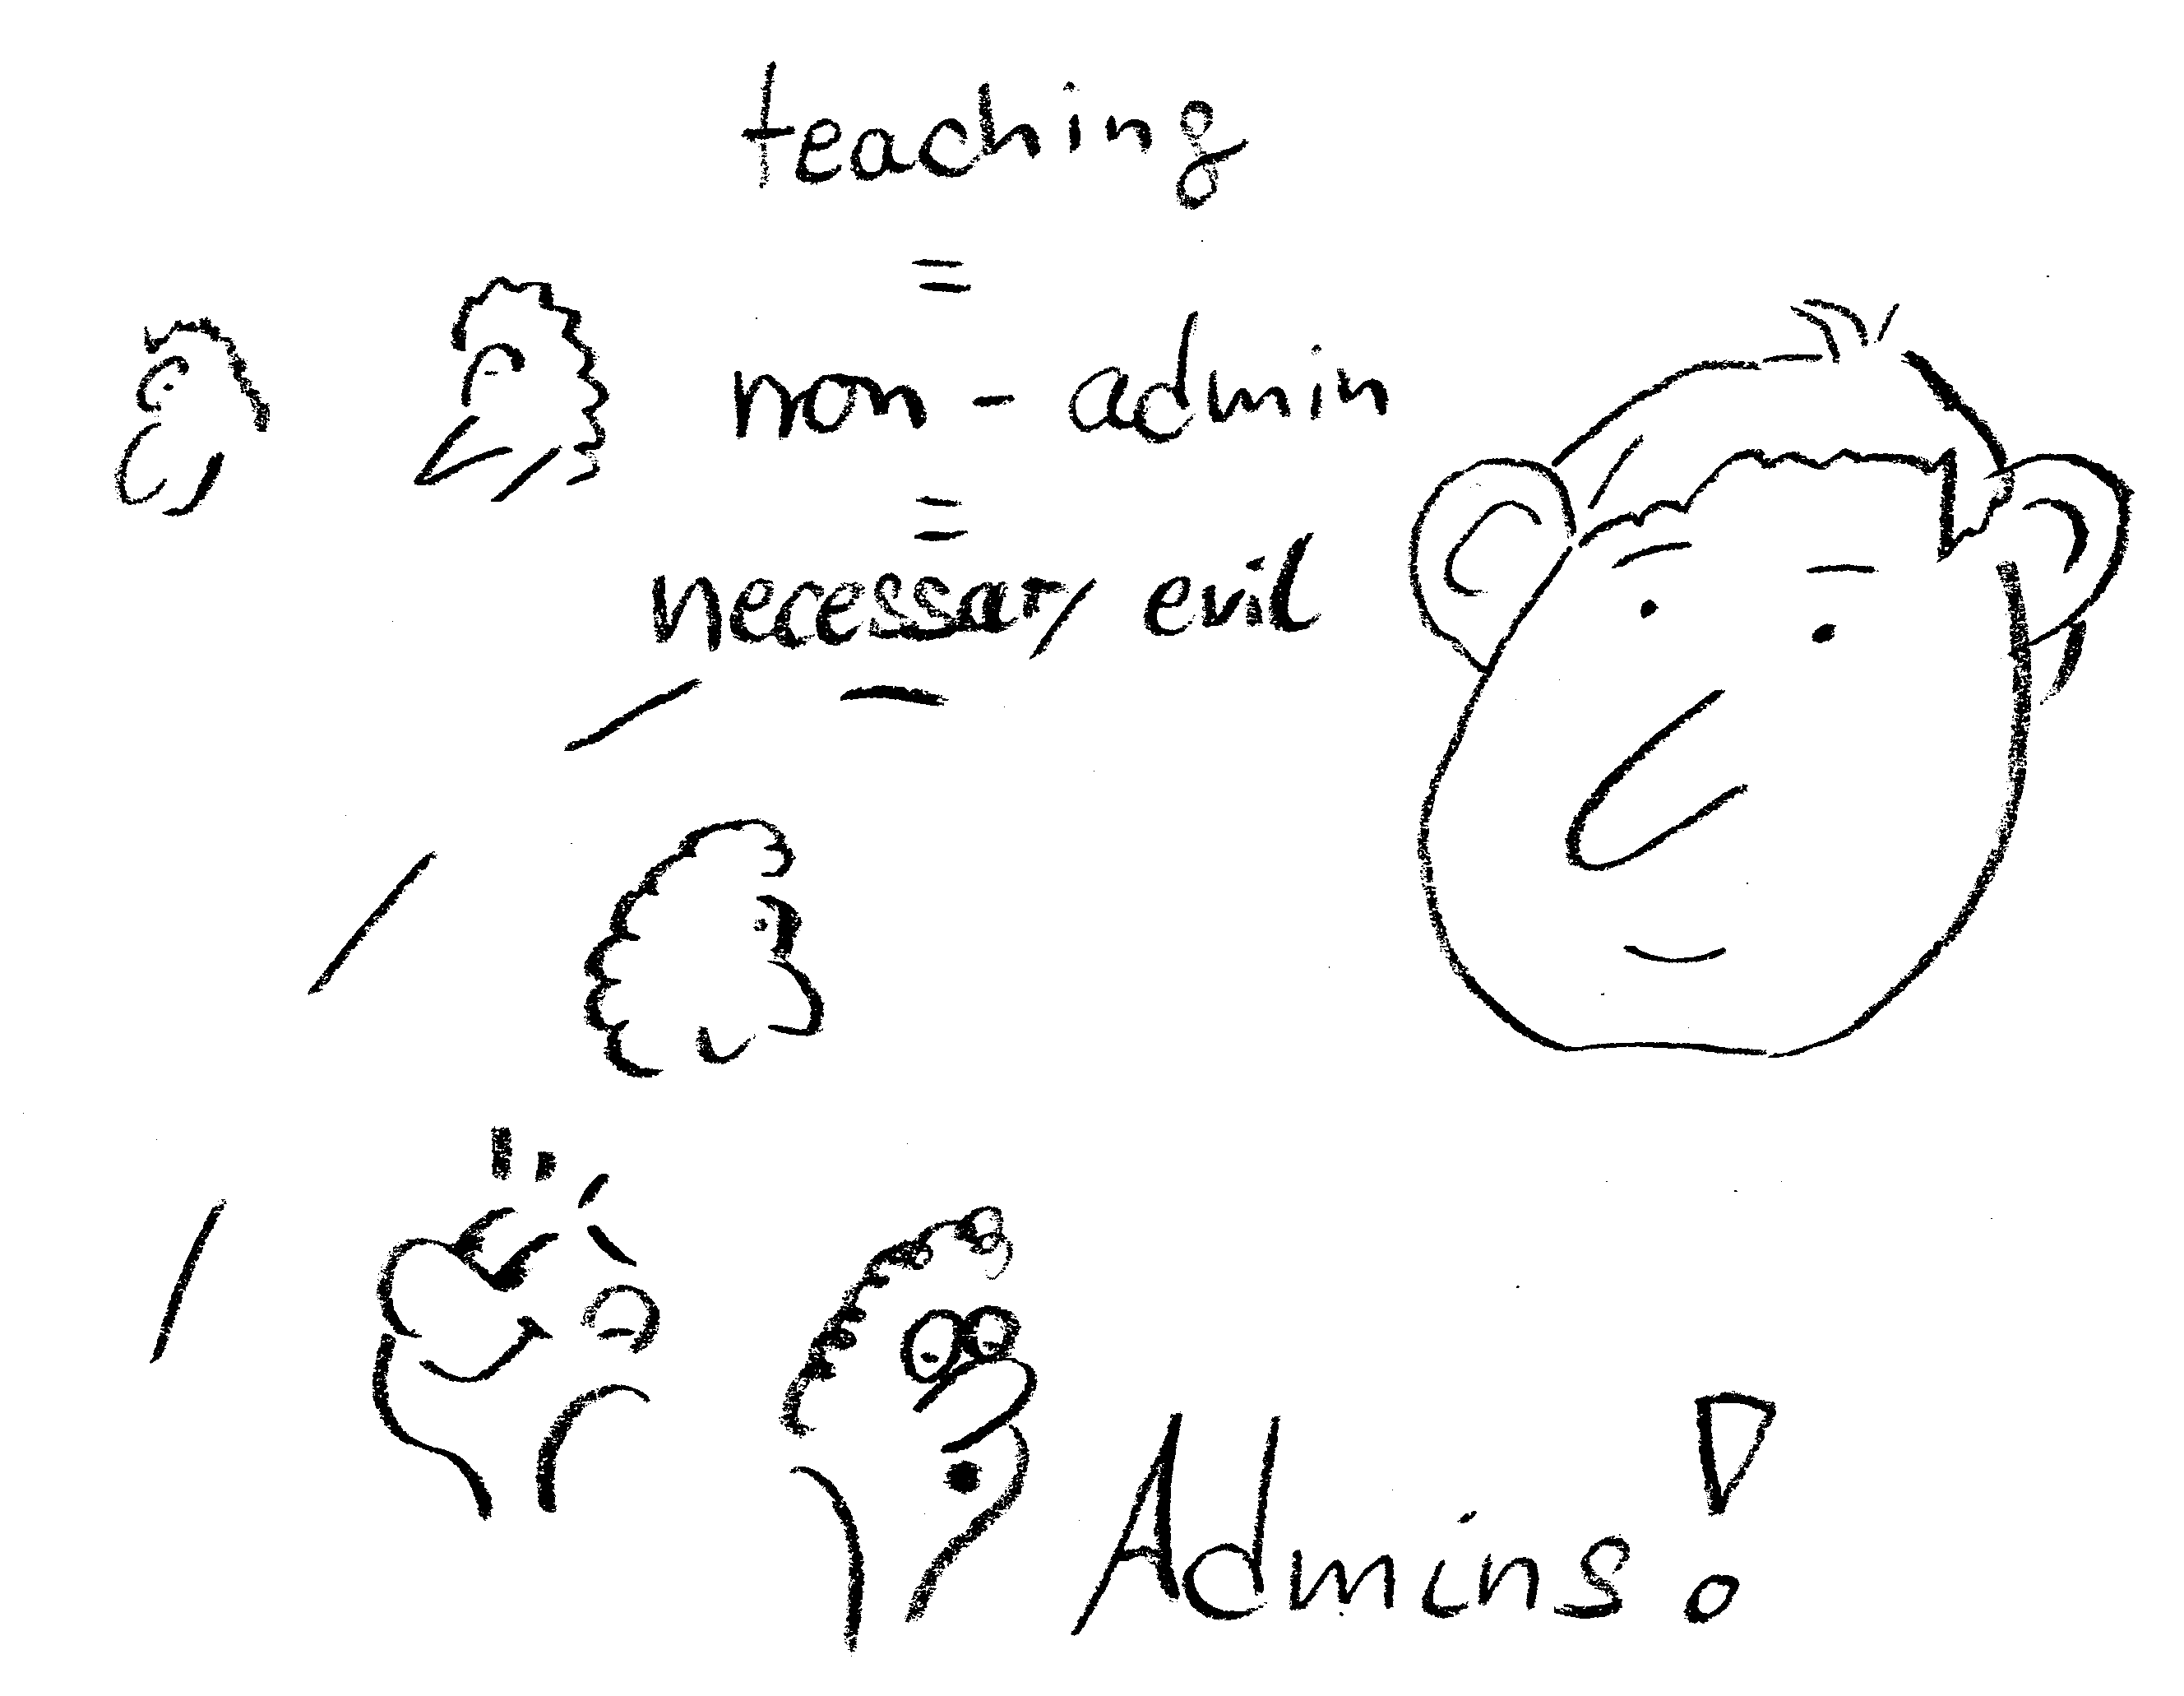 teaching
=
non - admin
=
necessary evil
Admins!